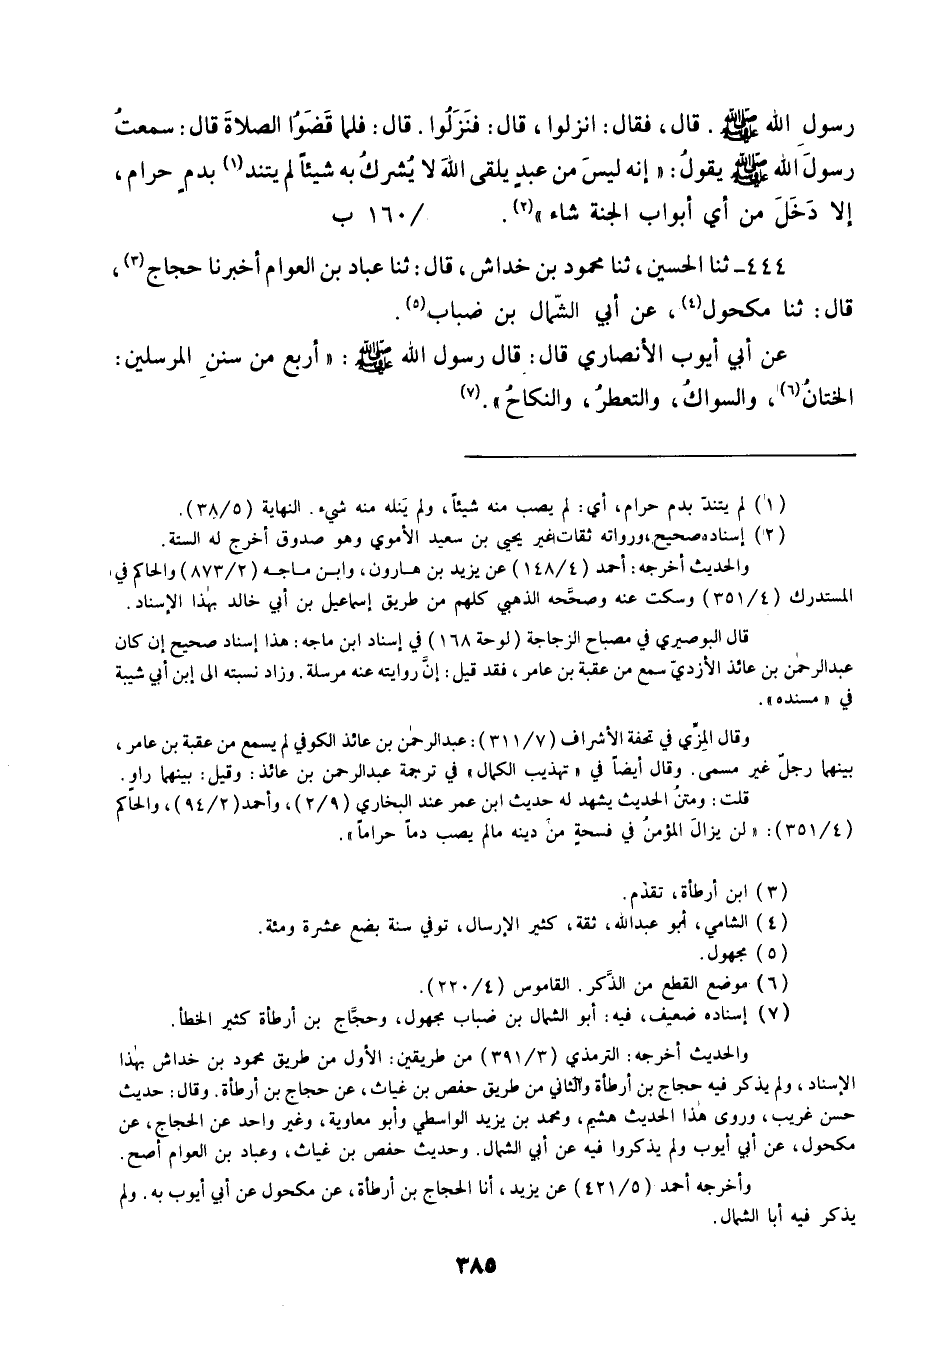 رسولِ الله ﷺ . قال، فقال: انزلوا، قال: فنَزَلُوا. قال: فلما قَضَوُا الصلاةَ قال: سمعتُ
رسولَ الله ﷺ يقولُ: « إنه ليسَ من عبدٍ يلقى اللهَ لا يُشركُ به شيئاً لم يتند(١) بدمٍ حرام،
إلا دَخَلَ من أي أبواب الجنة شاء »(٢). /١٦٠ ب
٤٤٤ـ ثنا الحسين، ثنا محمود بن خداش، قال: ثنا عباد بن العوام أخبرنا حجاج(٣)،
قال: ثنا مكحول(٤)، عن أبي الشّمال بن ضباب(٥).
عن أبي أيوب الأنصاري قال: قال رسول الله ﷺ : « أربع من سننِ المرسلين:
الختانُ(٦)، والسواكُ، والتعطرُ، والنكاحُ ».(٧)
(١) لم يتندّ بدم حرام، أي: لم يصب منه شيئاً، ولم يَنله منه شيء. النهاية (٣٨/٥).
(٢) إسناده صحيح، ورواته ثقات غير يحيى بن سعيد الأموي وهو صدوق أخرج له الستة.
والحديث أخرجه: أحمد (١٤٨/٤) عن يزيد بن هارون، وابن ماجه (٨٧٣/٢) والحاكم في
المستدرك (٣٥١/٤) وسكت عنه وصحَّحه الذهبي كلهم من طريق إسماعيل بن أبي خالد بهٰذا الإسناد.
قال البوصيري في مصباح الزجاجة (لوحة ١٦٨) في إسناد ابن ماجه: هذا إسناد صحيح إن كان
عبدالرحمٰن بن عائذ الأزديّ سمع من عقبة بن عامر، فقد قيل: إنَّ روايته عنه مرسلة. وزاد نسبته الى إبن أبي شيبة
في « مسنده ».
وقال المِزّي في تحفة الأشراف (٣١١/٧): عبدالرحمٰن بن عائذ الكوفي لم يسمع من عقبة بن عامر،
بينهما رجلٌ غير مسمى. وقال أيضاً في « تهذيب الكمال » في ترجمة عبدالرحمن بن عائذ: وقيل: بينهما راوٍ.
قلت: ومتنُ الحديث يشهد له حديث ابن عمر عند البخاري (٢/٩)، وأحمد (٩٤/٢)، والحاكم
(٣٥١/٤): « لن يزالَ المؤمنُ في فسحةٍ من دينه مالم يصب دماً حراماً ».
(٣) ابن أرطأة، تقدّم.
(٤) الشامي، أبو عبدالله، ثقة، كثير الإرسال، توفي سنة بضع عشرة ومئة.
(٥) مجهول.
(٦) موضع القطع من الذَّكر. القاموس (٢٢٠/٤).
(٧) إسناده ضعيف، فيه: أبو الشمال بن ضباب مجهول، وحجَّاج بن أرطأة كثير الخطأ.
والحديث أخرجه: الترمذي (٣٩١/٣) من طريقين: الأول من طريق محمود بن خداش بهٰذا
الإسناد، ولم يذكر فيه حجاج بن أرطأة والثاني من طريق حفص بن غياث، عن حجاج بن أرطأة. وقال: حديث
حسن غريب، وروى هٰذا الحديث هشيم، ومحمد بن يزيد الواسطي وأبو معاوية، وغير واحد عن الحجاج، عن
مكحول، عن أبي أيوب ولم يذكروا فيه عن أبي الشمال. وحديث حفص بن غياث، وعباد بن العوام أصح.
وأخرجه أحمد (٤٢١/٥) عن يزيد، أنا الحجاج بن أرطأة، عن مكحول عن أبي أيوب به. ولم
يذكر فيه أبا الشمال.
٣٨٥